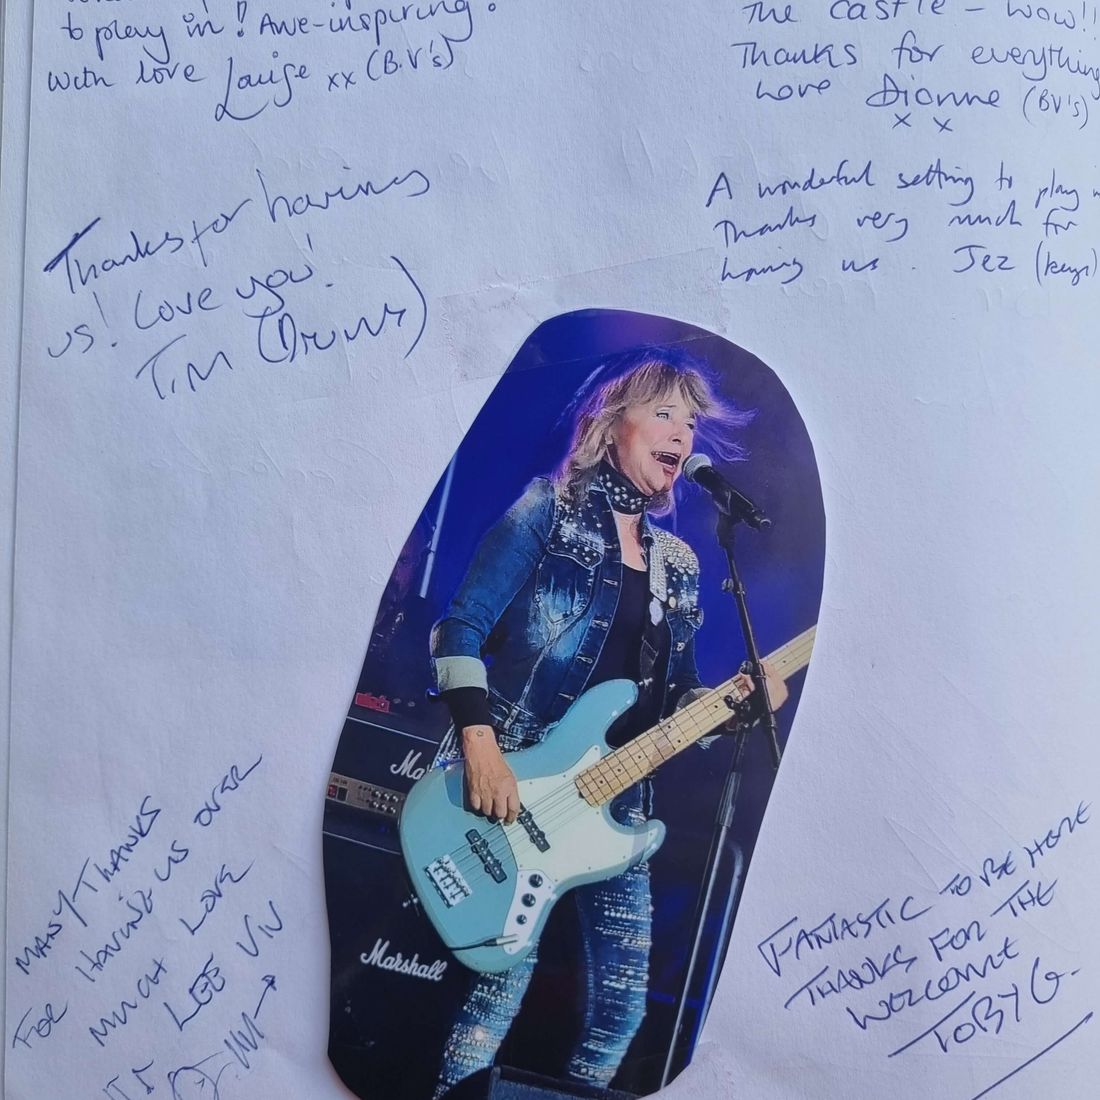 to play in! Awe-inspiring.
With love Louise xx (B.V's)
The castle – Wow!!
Thanks for everything
Love Dionne (BV's)
x x
Thanks for having
us! Love you!
Tim (Drums)
A wonderful setting to play
Thanks very much for
having us. Jez (keys)
Marshall
MANY THANKS
FOR HAVING US OVER
MUCH LOVE
LEE VIV
FANTASTIC TO BE HERE
THANKS FOR THE
WELCOME
TOBY G.